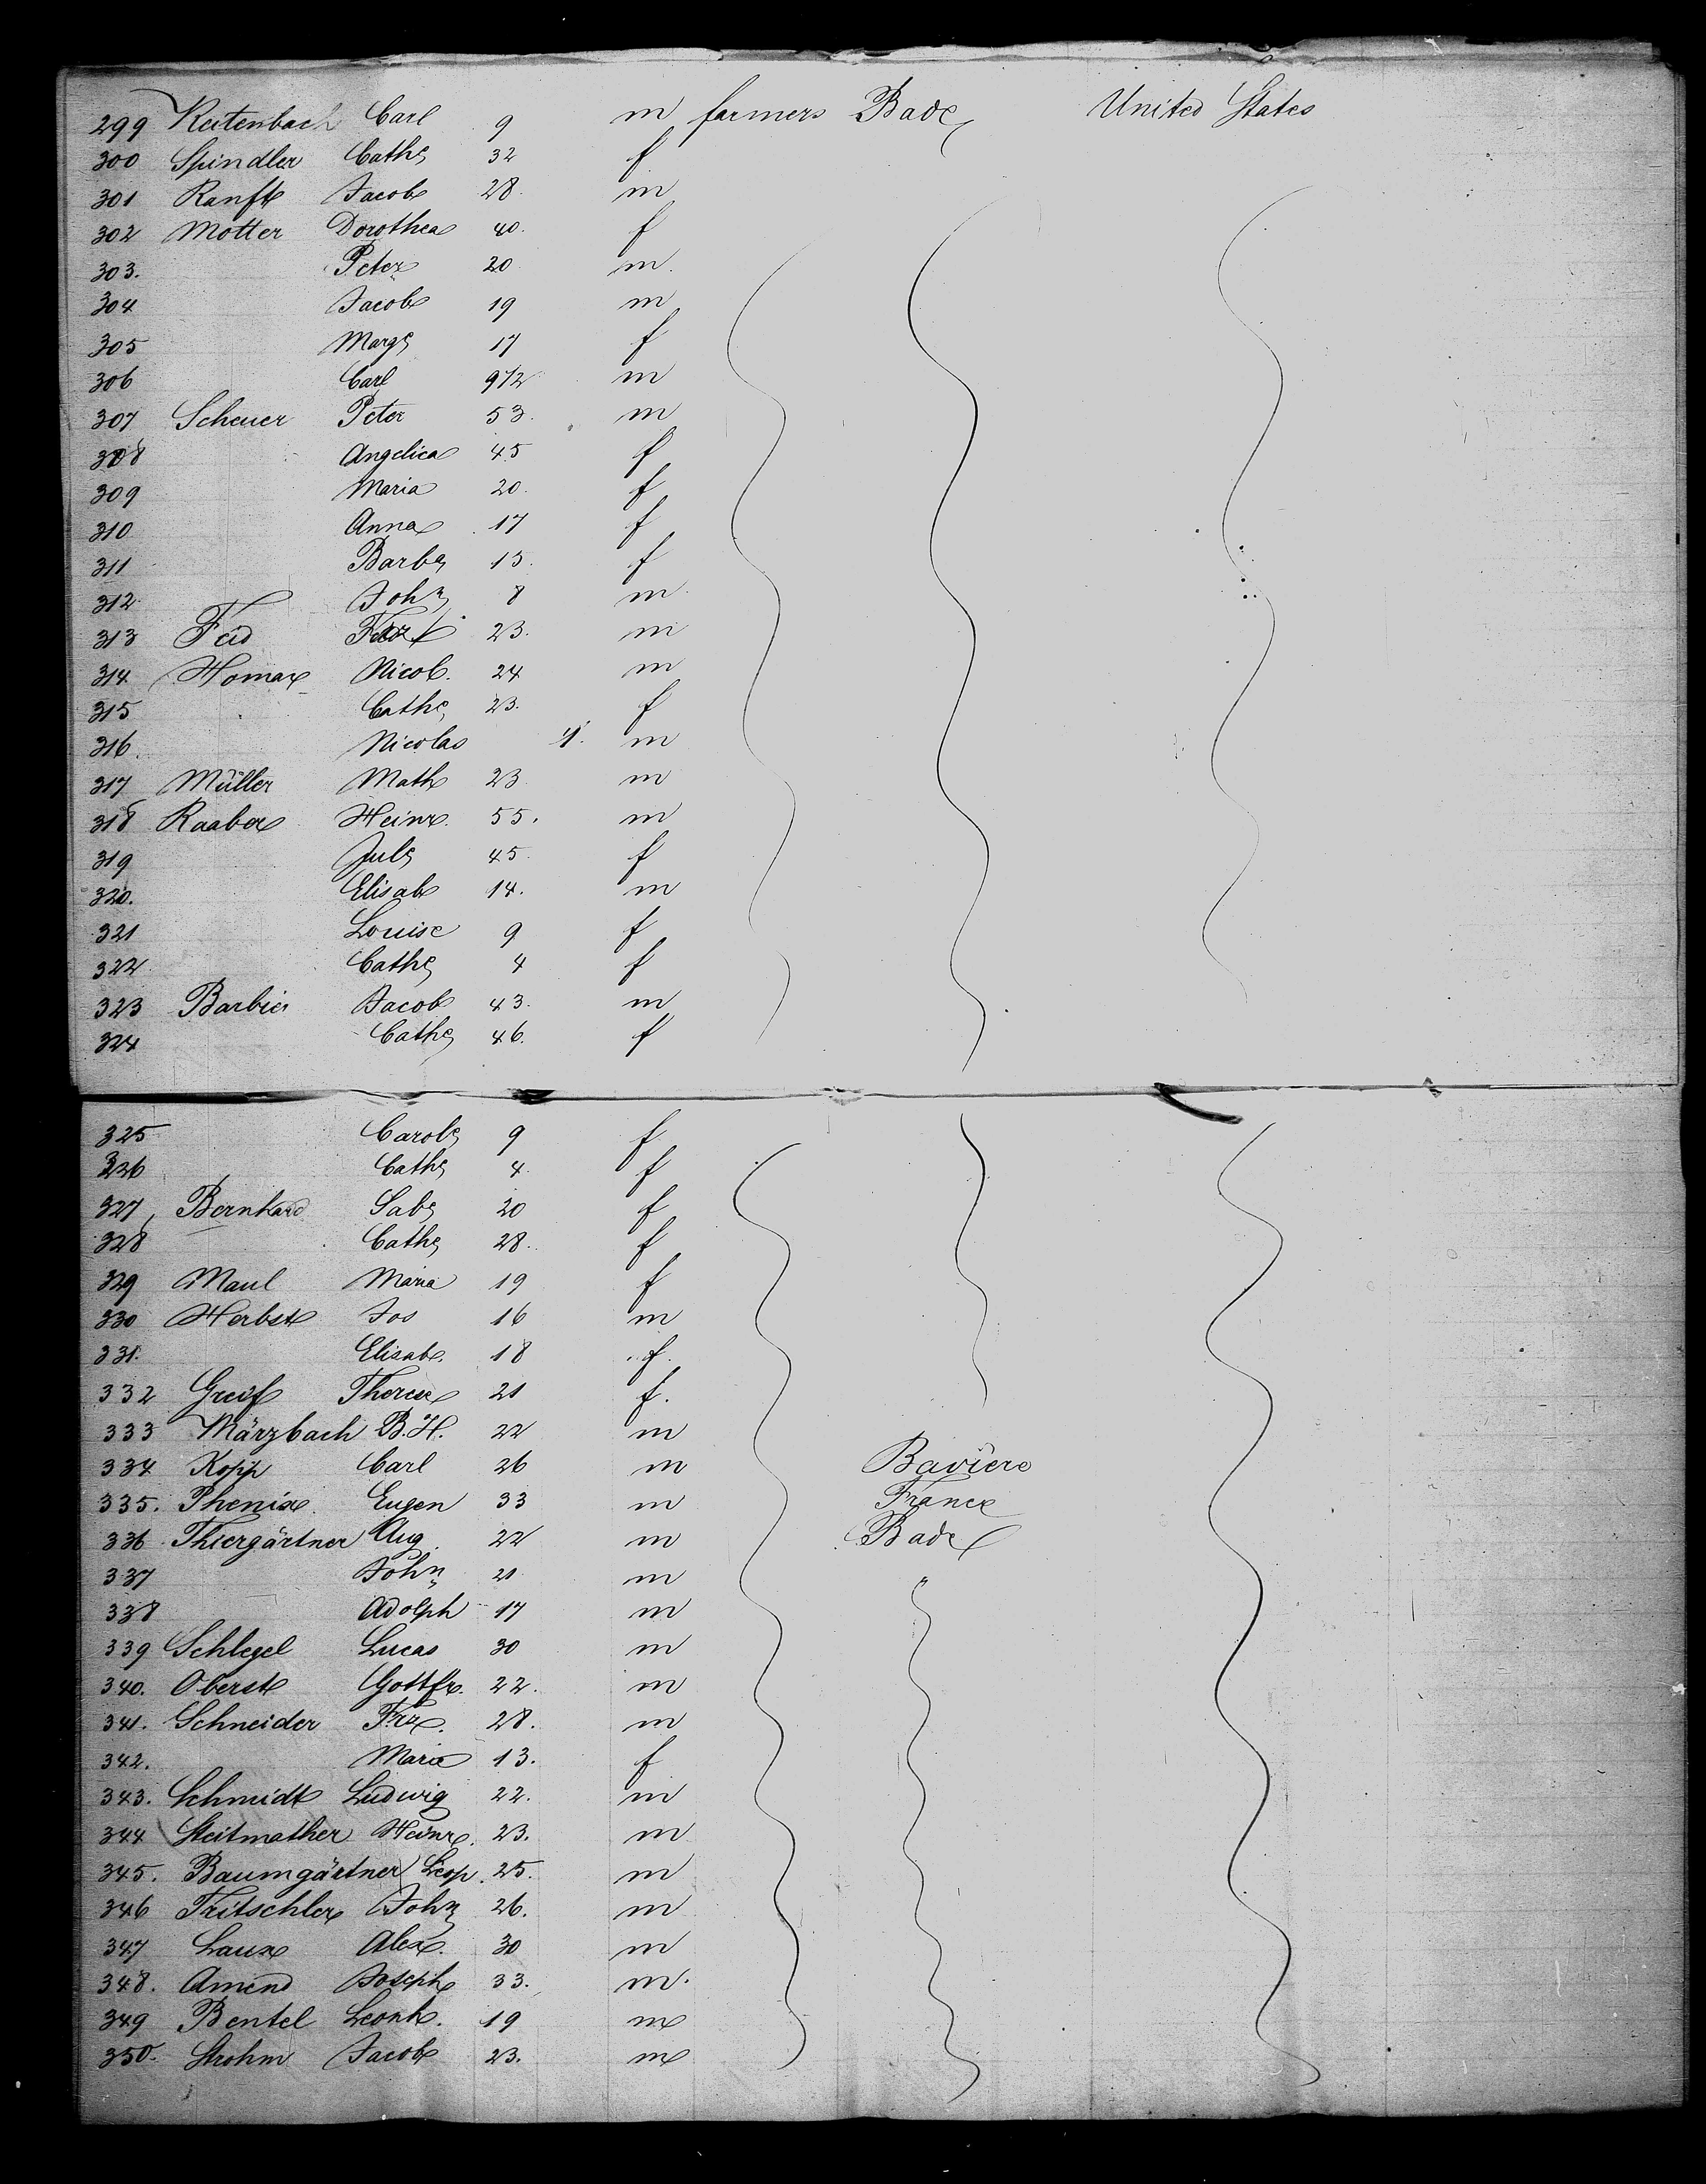 299 Reitenbach Carl 9 m farmers Bade United States
300 Spindler Cath. 32 f
301 Ranft Jacob 28. m
302 Motter Dorothea 40. f
303. Peter 20 m.
304 Jacob 19 m
305 Marg. 17 f
306 Carl 9 1/2 m
307 Scheuer Peter 53. m
308 Angelica 45 f
309 Maria 20. f
310 Anna 17 f
311 Barb. 15. f
312. Joh. 8 m.
313 Feid 23. m
314 Homax Nicol. 24 m
315 Cath. 23. f
316. Nicolas m
317 Müller Math 23 m
318 Raaber Heinr. 55. m
319 Jul. 45 f
320. Elisab 14. m
321 Louise 9 f
322 Cath. 4 f
323 Barbier Jacob 43. m
324 Cath. 46. f
325 Carol. 9 f
326 Cath. 4 f
327, Bernhard Sab. 20 f
328 Cath. 28. f
329 Maul Maria 19 f
330 Herbst Jos 16 m
331. Elisab. 18 f.
332 Greif Therese 21 f.
333 Märzbach B.H. 22 m
334 Kopp Carl 26 m Baviere
335. Phenix Eugen 33 m France
336 Thiergärtner Aug. 22 m Bade
337 Joh. 21 m "
338 Adolph 17 m
339 Schlegel Lucas 30 m
340. Oberst Gottfr. 22. m
341. Schneider Frz. 28. m
342. Maria 13. f
343. Schmidt Ludwig 22. m
344 Steitmather Heinr. 23. m
345. Baumgärtner Leop. 25. m
346 Fritschler Joh. 26. m
347 Laux Alex. 30 m
348. Amend Joseph 33. m.
349 Bentel Leonh. 19 m
350. Strohm Jacob 23. m